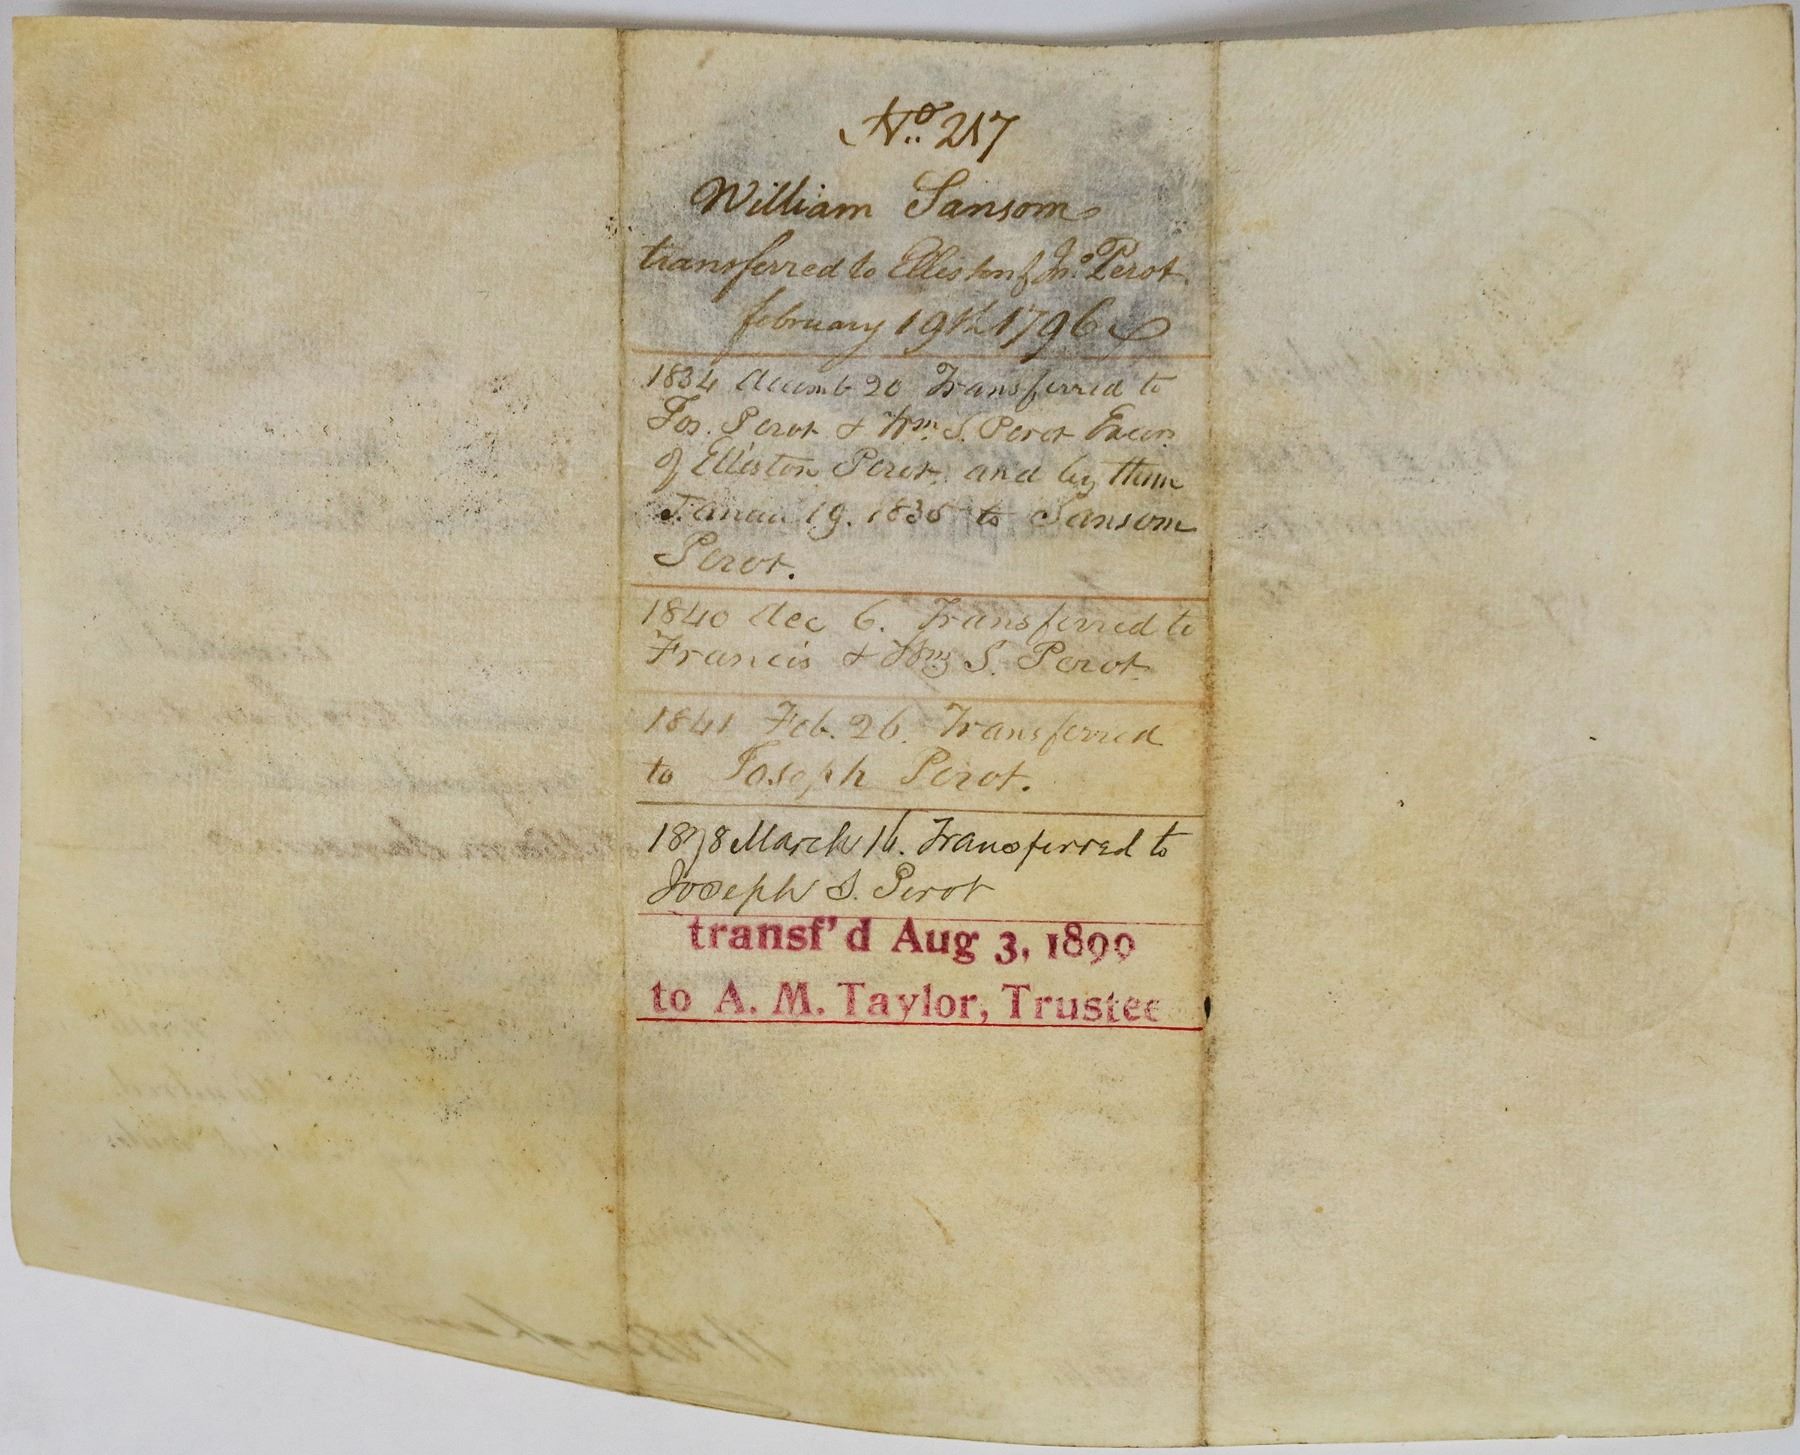 No. 217
William Sansom
transferred to Elliston & Jno. Perot
february 19th 1796
1834 decemb 20 Transferred to
Jos. Perot & Wm. S. Perot Execrs
of Elliston Perot, and by them
Januar 19. 1835 to Sansom
Perot.
1840 dec 6. Transferred to
Francis & Wm S. Perot
1841 Feb. 26. Transferred
to Joseph Perot.
1898 March 16. Transferred to
Joseph S. Perot
transf'd Aug 3, 1899
to A. M. Taylor, Trustee